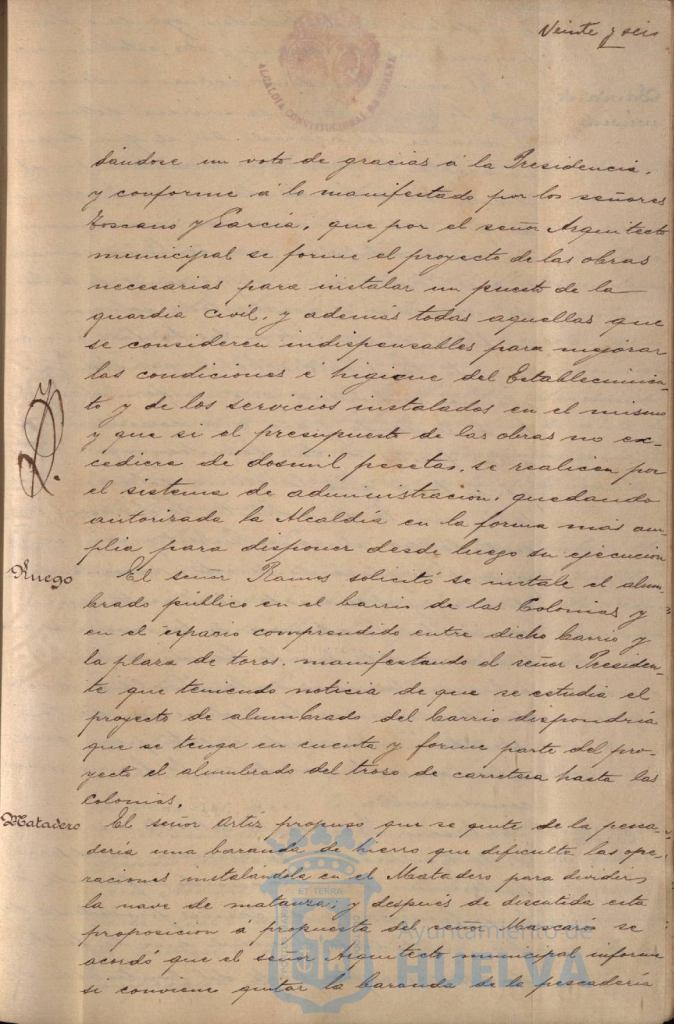 Veinte y seis
ALCALDÍA CONSTITUCIONAL DE HUELVA
dándose un voto de gracias á la Presidencia,
y conforme á lo manifestado por los señores
Toscano y García, que por el señor Arquitecto
municipal se forme el proyecto de las obras
necesarias para instalar un puesto de la
guardia civil, y además todas aquellas que
se consideren indispensables para mejorar
las condiciones é higiene del Establecimien-
to y de los servicios instalados en el mismo
y que si el presupuesto de las obras no ex-
cediere de dosmil pesetas, se realicen por
el sistema de administración, quedando
autorizada la Alcaldía en la forma más am-
plia para disponer desde luego su ejecución
Ruego
El señor Ramos solicitó se instale el alum-
brado público en el barrio de las Colonias y
en el espacio comprendido entre dicho barrio y
la plaza de toros, manifestando el señor Presiden-
te que teniendo noticia de que se estudia el
proyecto de alumbrado del barrio dispondría
que se tenga en cuenta y forme parte del pro-
yecto el alumbrado del trozo de carretera hasta las
Colonias.
Matadero
El señor Ortiz propuso que se quite de la pesca-
dería una baranda de hierro que dificulta las ope-
raciones instalándola en el Matadero para dividir
la nave de matanza; y después de discutida esta
proposicion á propuesta del señor Mascarós se
acordó que el señor Arquitecto municipal informe
si conviene quitar la baranda de la pescadería
ET TERRA
Ayuntamiento de
HUELVA